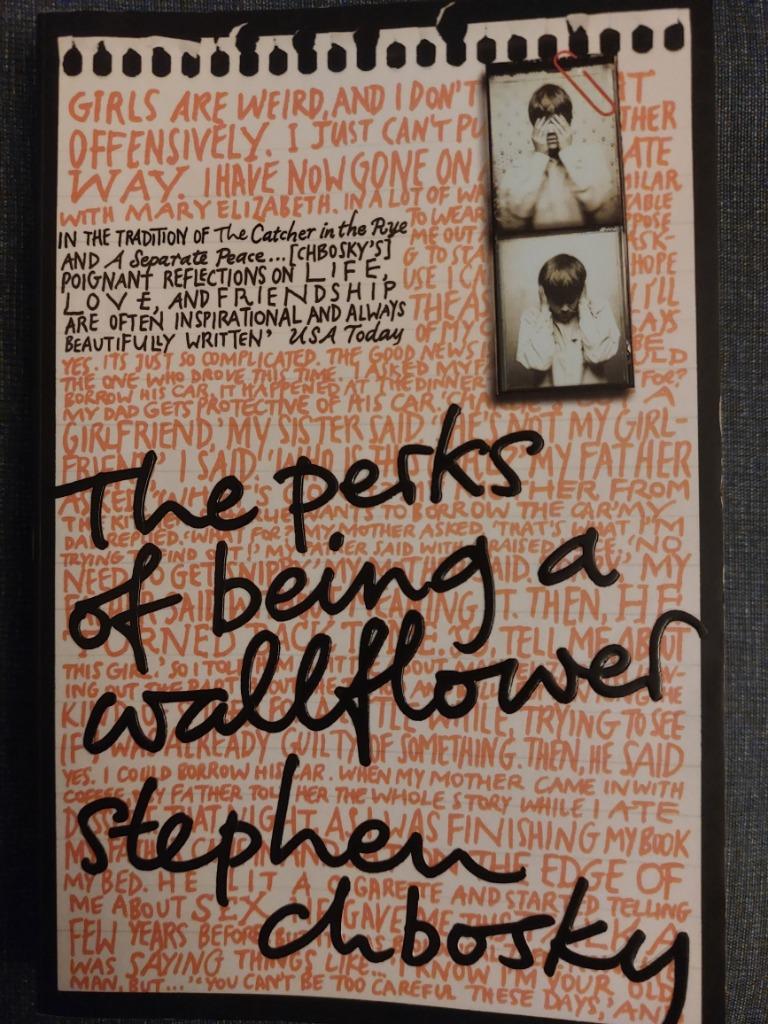 GIRLS ARE WEIRD, AND I DON'T
OFFENSIVELY. I JUST CAN'T PU
THER
WAY. I HAVE NOW GONE ON
ATE
WITH MARY ELIZABETH. IN A LOT OF WA
ILAR
TO WEAR
TABLE
IN THE TRADITION OF The Catcher in the Rye
ME OUT
POSE
AND A Separate Peace... [CHBOSKY'S]
G TO STA
ASK-
POIGNANT REFLECTIONS ON LIFE,
USE I CA
HOPE
LOVE, AND FRIENDSHIP
THE AS
I'LL
ARE OFTEN INSPIRATIONAL AND ALWAYS
OF MY
AYS
BEAUTIFULLY WRITTEN' USA Today
BE
YES. IT'S JUST SO COMPLICATED. THE GOOD NEWS
THE ONE WHO DROVE THIS TIME. I ASKED MY
FOR?
BORROW HIS CAR. IT HAPPENED AT THE DINNER
MY DAD GETS PROTECTIVE OF HIS CAR.
A
GIRLFRIEND,' MY SISTER SAID. 'HE'S MY GIRL-
FRIEND,' I SAID. MY FATHER
The perks
ASKED. HER FROM
THE WANTS TO BORROW THE CAR,' MY
DAD REPLIED. 'WHAT FOR?' MY MOTHER ASKED. 'THAT'S WHAT I'M
TRYING FIND OUT!' MY FATHER SAID WITH RAISED 'NO
of being a
NEED TO GET SNIPPY,' MY SAID. MY
SAID THEN, HE
TURNED BACK TO TELL ME ABOUT
wallflower
THIS GIRL.' SO I TOLD
ING OUT THE PART
LITTLE WHILE, TRYING TO SEE
IF I WAS ALREADY GUILTY OF SOMETHING. THEN, HE SAID
YES. I COULD BORROW HIS CAR. WHEN MY MOTHER CAME IN WITH
COFFEE, MY FATHER TOLD HER THE WHOLE STORY WHILE I ATE
stephen
THAT NIGHT, AS I WAS FINISHING MY BOOK
MY FATHER ON THE EDGE OF
MY BED. HE LIT A CIGARETTE AND STARTED TELLING
ME ABOUT SEX. HE GAVE ME THIS TALK A
chbosky
FEW YEARS BEFORE
WAS SAYING THINGS LIKE... I KNOW I'M YOUR OLD
MAN, BUT...' 'YOU CAN'T BE TOO CAREFUL THESE DAYS,' AND